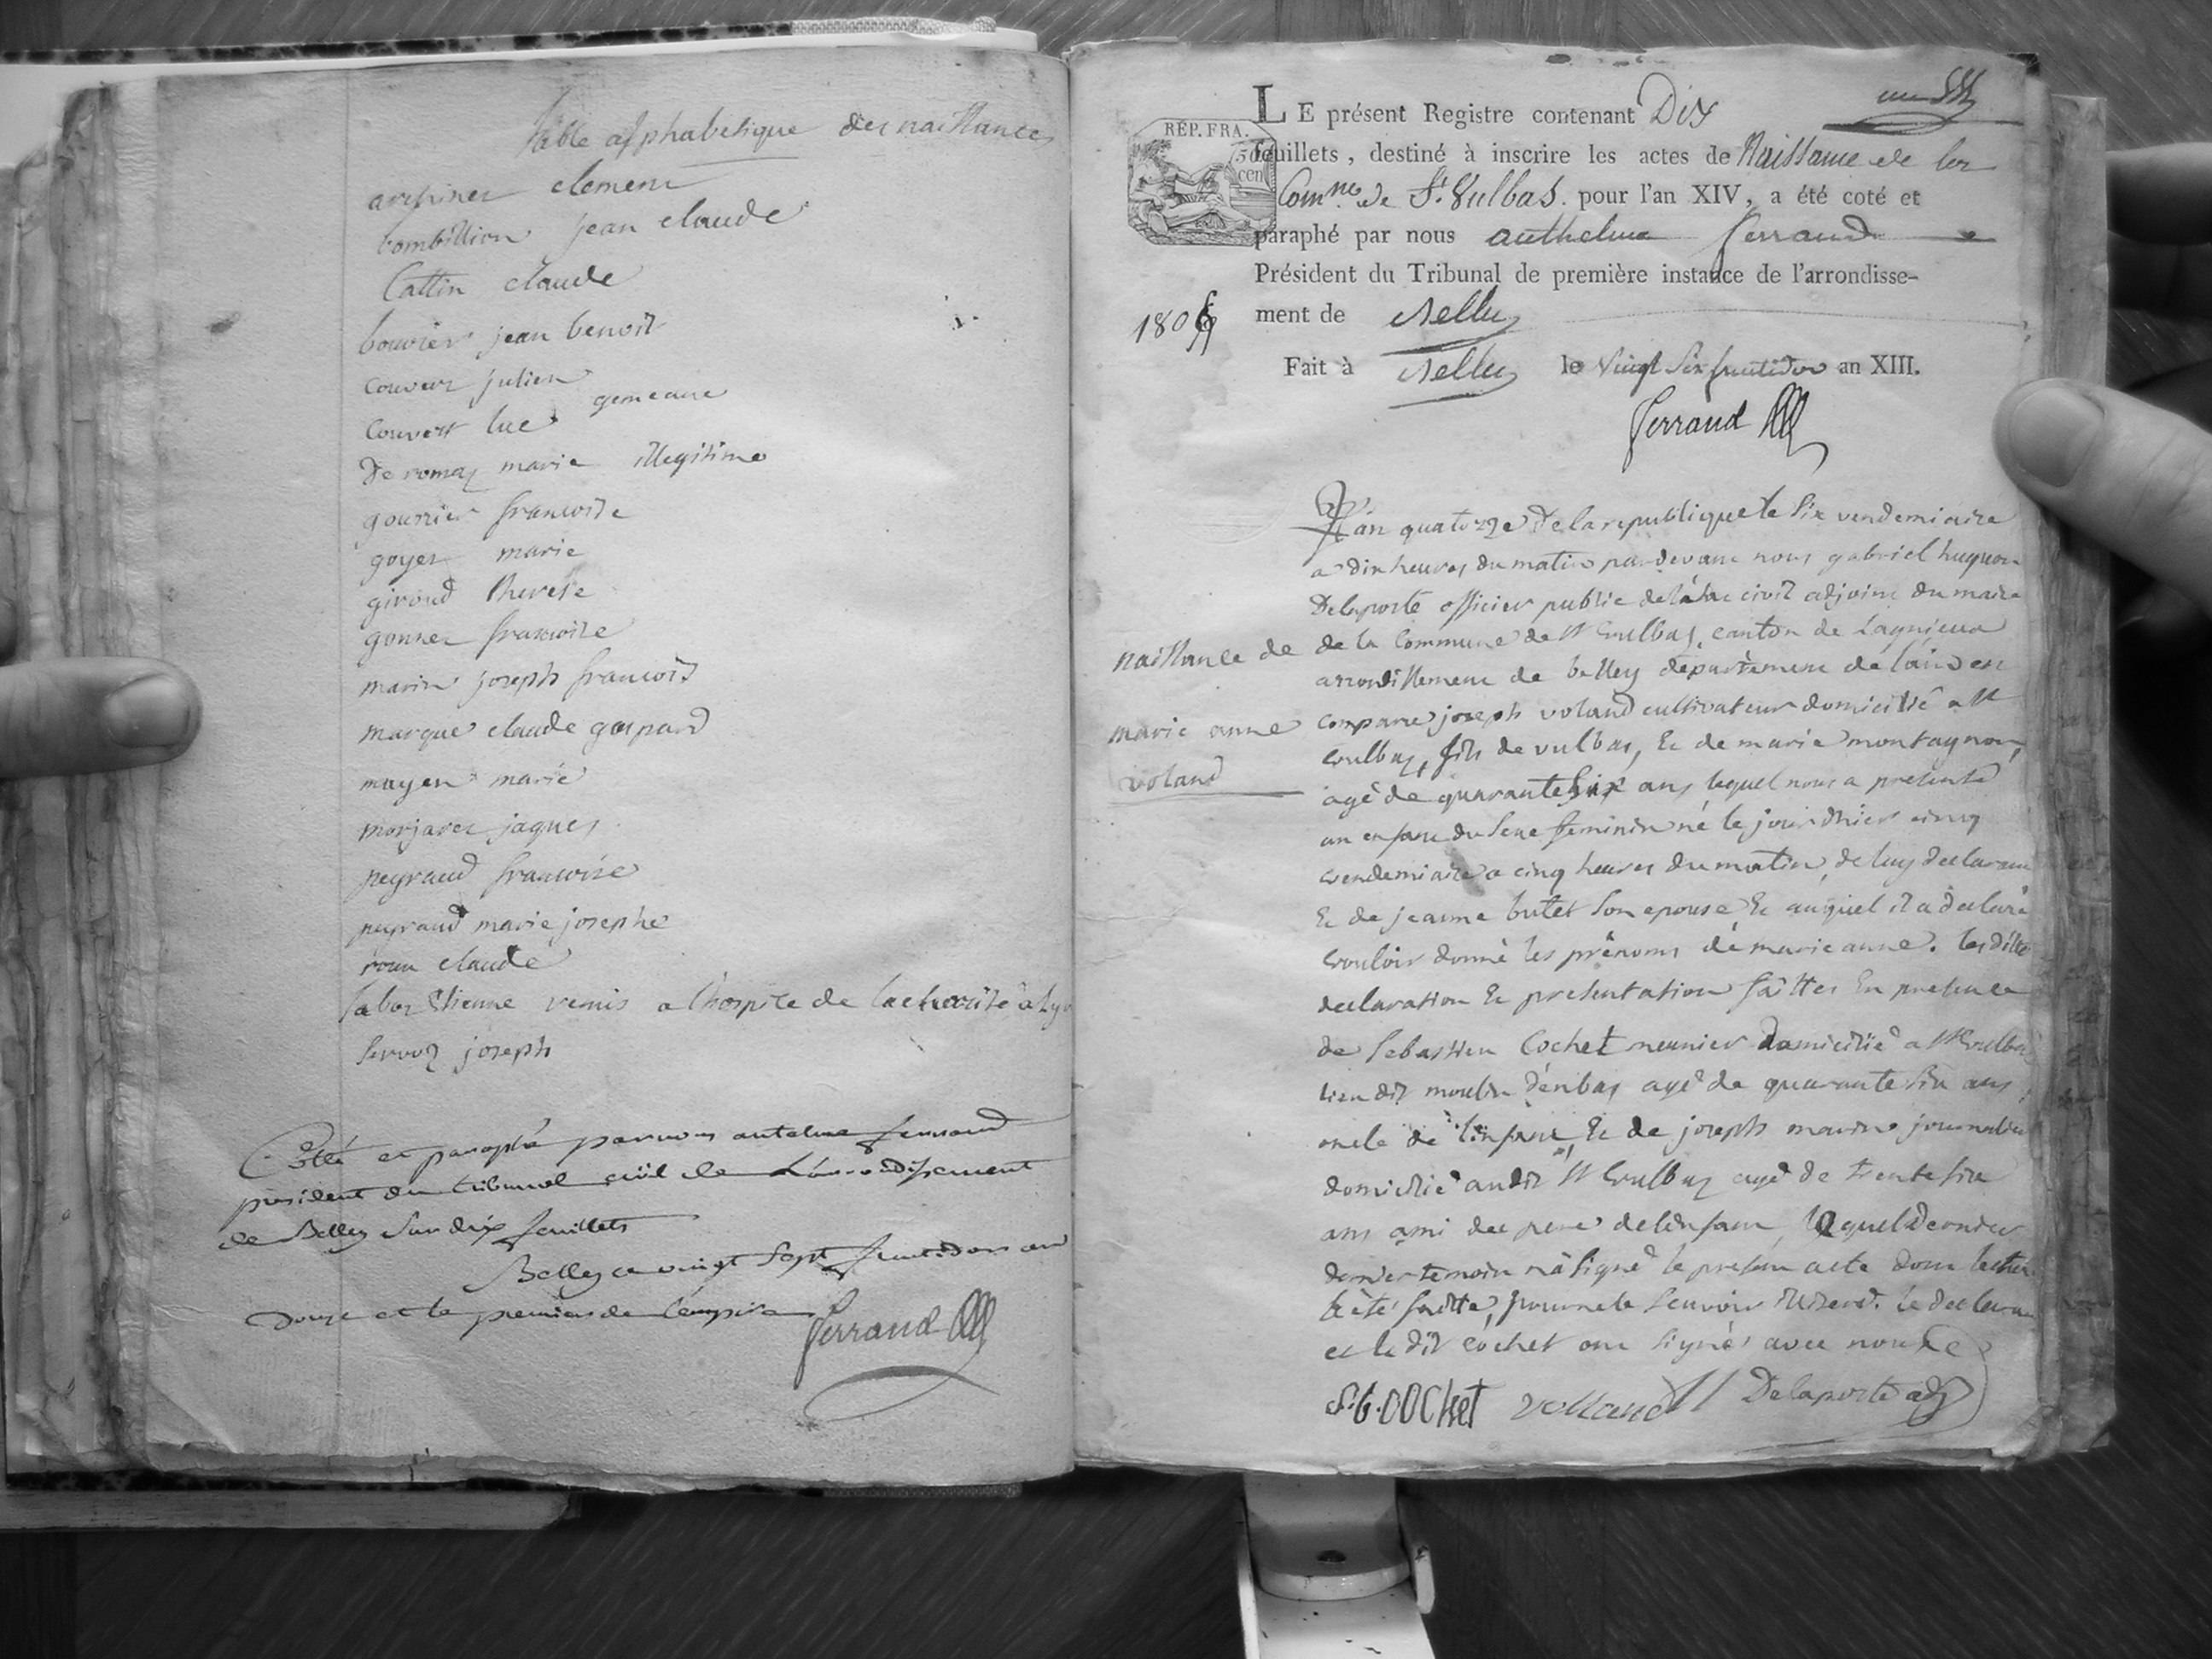 Table alphabetique des naissances
clement
bombillion jean claude
Cattin claude
bouvier jean benoit
couvert julien
gemeaux
Couvert luc
De romay marie illegitime
gourrier francoise
goyet marie
giroud therese
gonnet francoise
marin joseph francois
marque claude gaspard
mayen marie
morjaret jaques
peyraud francoise
peyraud marie josephe
roux claude
Etienne remis a lhospice de la charité a Ly
Servoz joseph
Cotté et paraphé par nous antelme ferrand
président du tribunal civil de L'arrondissement
de Belley Sur dix feuillets
Belley ce vingt Sept fructidor an
Douze et le premier de l'empire
ferrand
un
LE présent Registre contenant Dix
REP. FRA.
50
cen
feuillets, destiné à inscrire les actes de Naissance de la
Comne de St Vulbas pour l'an XIV, a été coté et
paraphé par nous anthelme ferrand
Président du Tribunal de première instance de l'arrondisse-
ment de Belley
180
Fait à Belley le vingt Six fructidor an XIII.
ferrand
L'an quatorze De la republique le Six vendemiaire
a dix heures du matin par devant nous gabriel huguon
Delaporte officier public de l'état civil adjoint du maire
naissance de
de la Commune de St Vulbas, canton de Lagnieux
arrondissement de belley département de l'ain est
marie anne
comparu joseph voland cultivateur domicilié a St
vulbas, fils de vulbas, & de marie montagnon,
voland
agé de quarante Six ans lequel nous a presenté
un enfant du Sexe feminin né le jour d'hier cinq
vendemiaire a cinq heures du matin, de luy declarant
& de jeanne butet Son epouse & auquel il a declaré
vouloir donné les prénoms dé marie anne. les dittes
declaration & presentation faittes En presence
de Sebastien Cochet meunier domicilié a St Vulbas
lieu dit moulin d'en bas agé de quarante six ans
oncle de l'enfant, & de joseph marin journalier
domicilié audit St Vulbas agé de trente six
ans ami du pere de l'enfant, lequel dernier
dernier temoin n'a Signé le present acte dont lecture
a été faitte, pour ne le Scavoir le declarant
et le dit cochet ont Signés avec nous
S.b. COCHet volland Delaporte adj